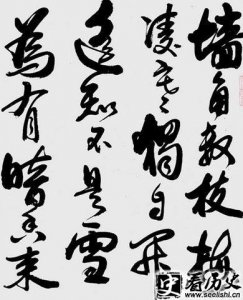 墙角数枝梅
凌寒独自开
遥知不是雪
為有暗香来
看历史
www.seelishi.cn